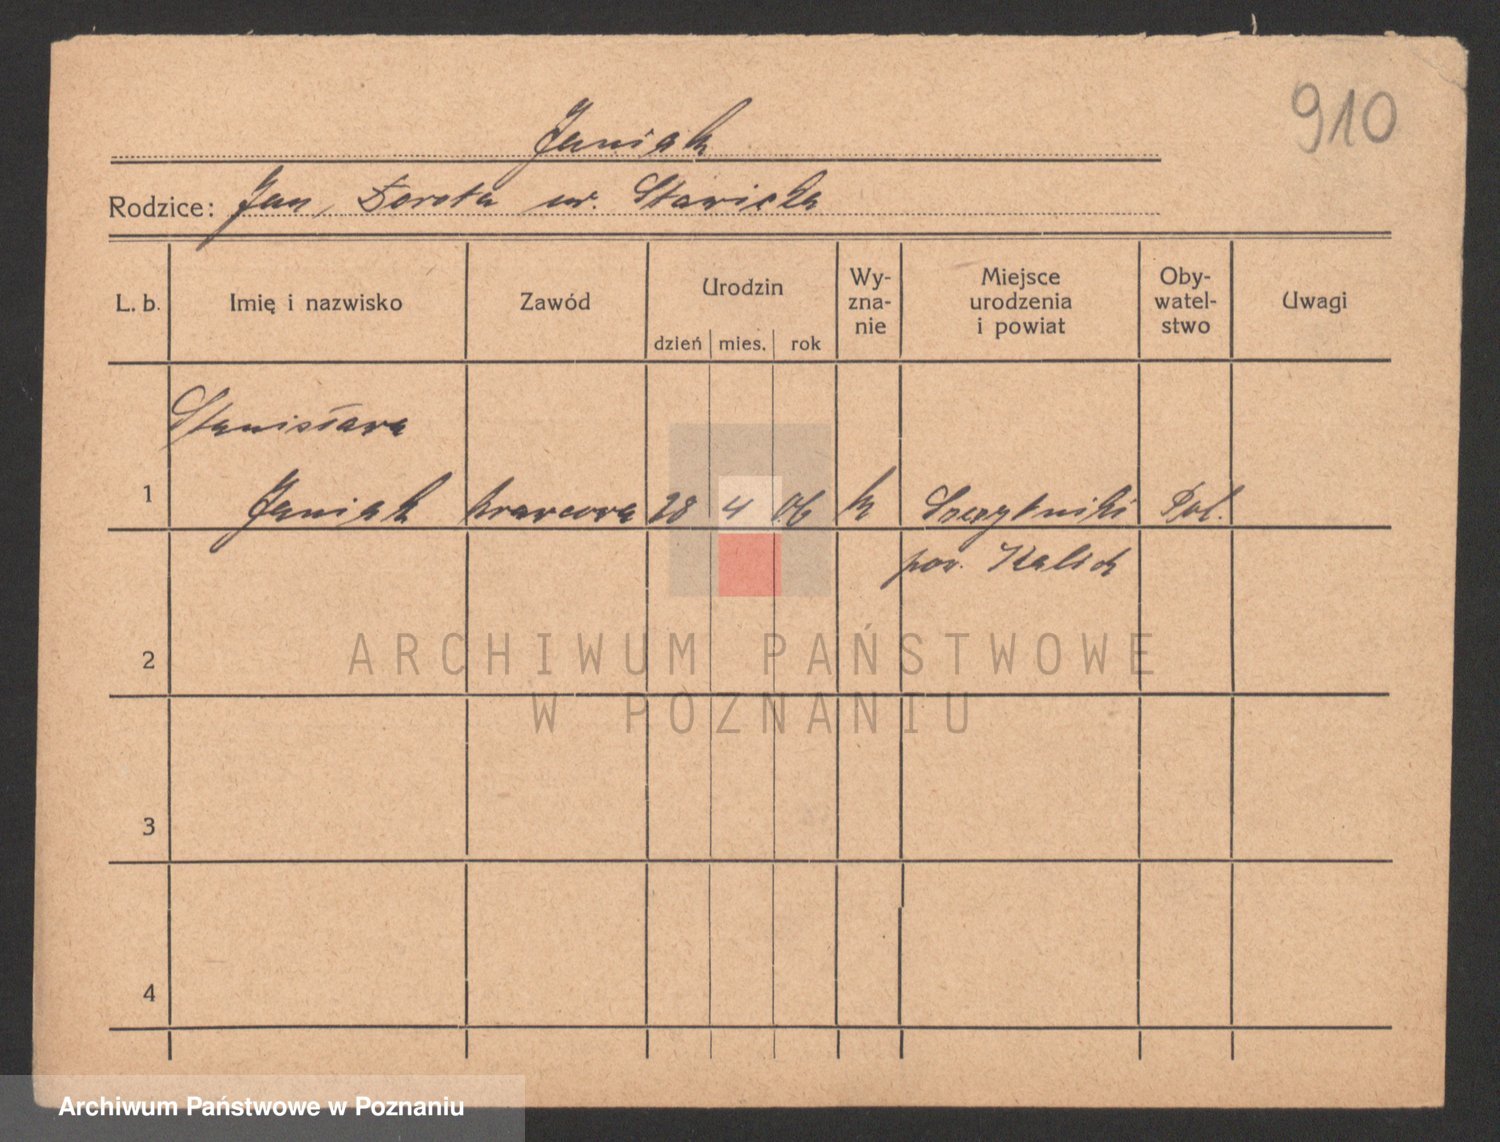 910
Janiak
Rodzice: Jan, Dorota ur. Stawicka
L. b. Imię i nazwisko Zawód Urodzin dzień mies. rok Wy-zna-nie Miejsce urodzenia i powiat Oby-watel-stwo Uwagi
Stanisława
1 Janiak krawcowa 28 4 06 k Szczytniki Pol.
pow. Kalich
2
ARCHIWUM PAŃSTWOWE
W POZNANIU
3
4
Archiwum Państwowe w Poznaniu